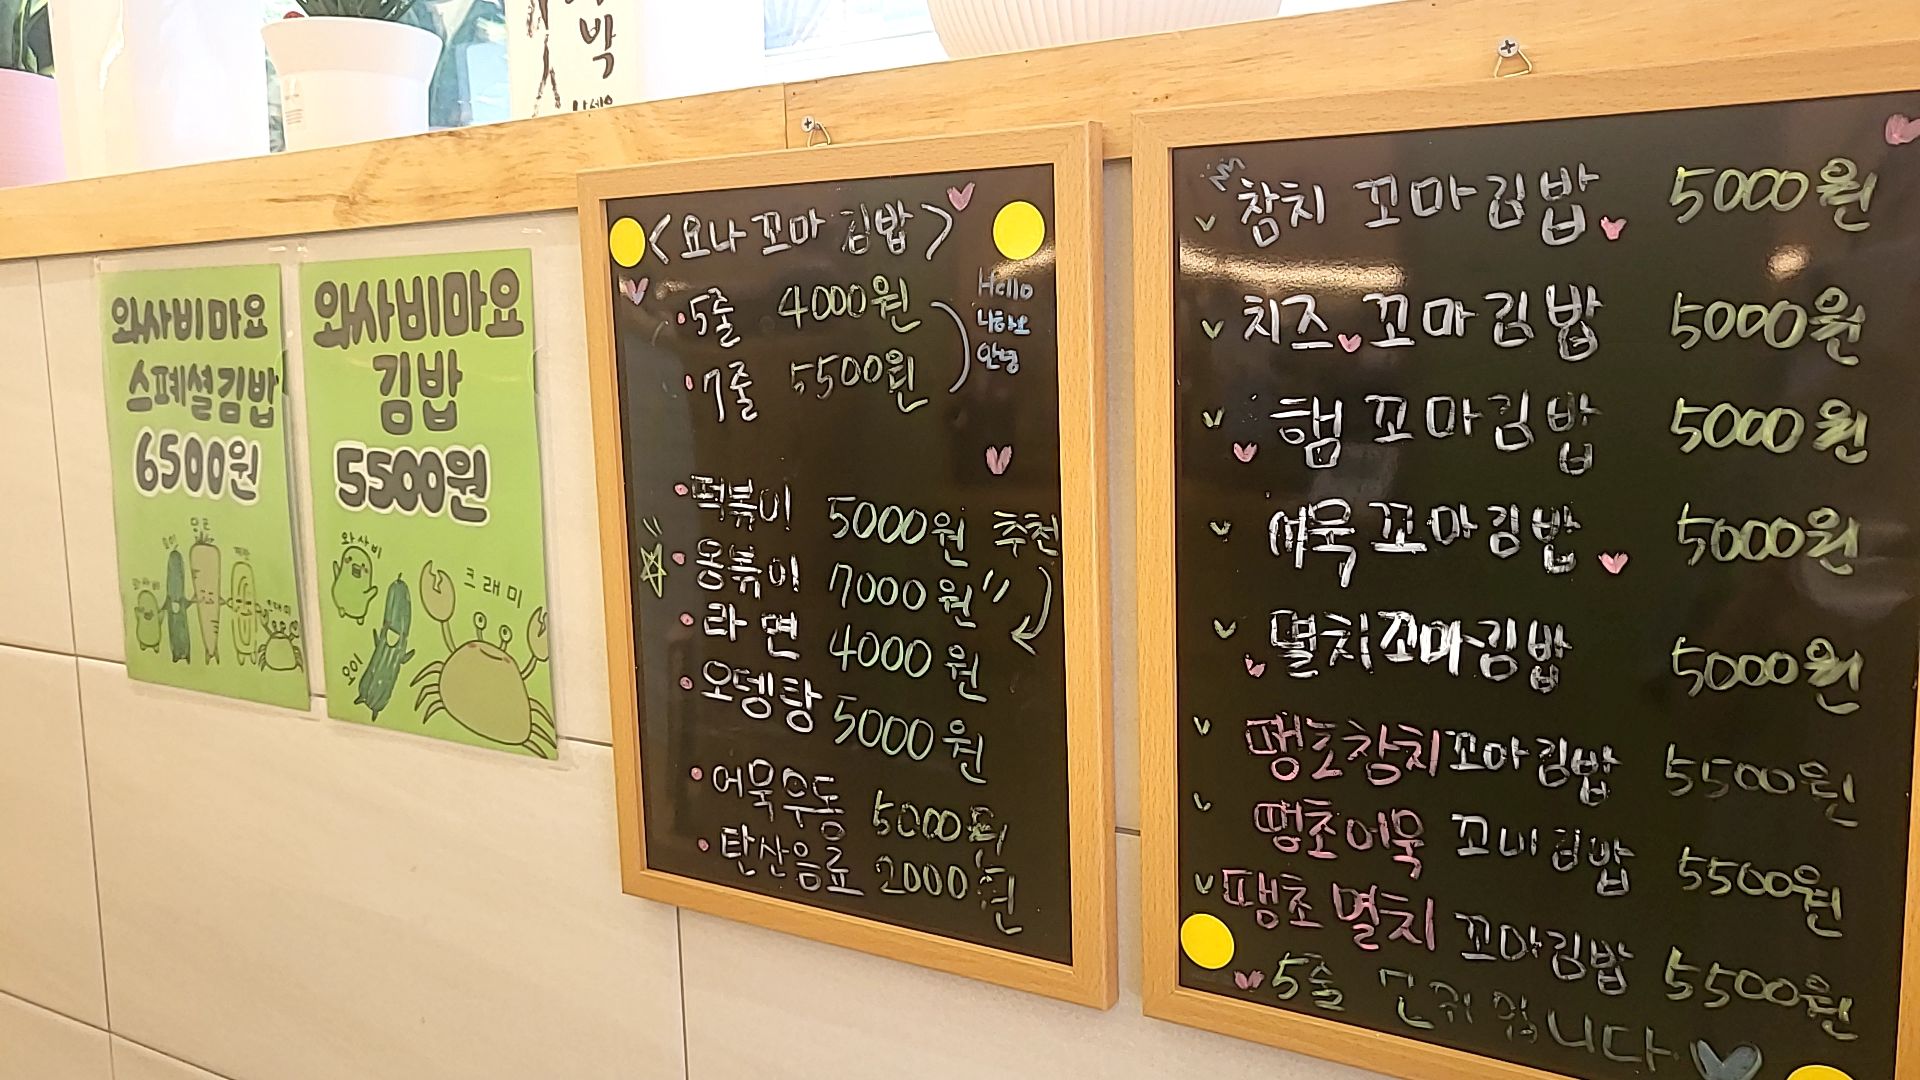 박
와사비마요
스페셜김밥
6500원
오이
당근
와사비마요
김밥
5500원
와사비
크래미
오이
<요나꼬마 김밥>
Hello
니하오
안녕
5줄 4000원
7줄 5500원
떡볶이 5000원 추천
옹볶이 7000원
라면 4000원
오뎅탕 5000원
어묵우동 5000원
탄산음료 2000원
참치 꼬마김밥 5000원
치즈 꼬마김밥 5000원
햄 꼬마김밥 5000원
어묵 꼬마김밥 5000원
멸치꼬마김밥 5000원
땡초참치꼬마김밥 5500원
땡초어묵 꼬마김밥 5500원
땡초멸치 꼬마김밥 5500원
5줄 입니다